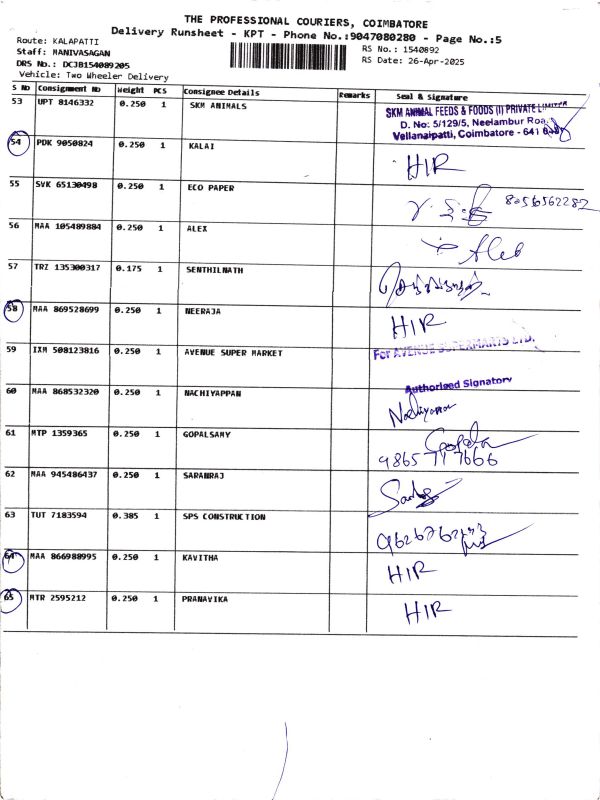 THE PROFESSIONAL COURIERS, COIMBATORE
Delivery Runsheet - KPT - Phone No.:9047080280 - Page No.:5
Route: KALAPATTI
RS No.: 1540892
Staff: MANIVASAGAN
RS Date: 26-Apr-2025
DRS No.: DCJB154089205
Vehicle: Two Wheeler Delivery
S No Consignment No Weight PCS Consignee Details Remarks Seal & Signature
53 UPT 8146332 0.250 1 SKM ANIMALS
SKM ANIMAL FEEDS & FOODS (I) PRIVATE LIMITED
D. No: 5/129/5, Neelambur Road,
Vellanaipatti, Coimbatore - 641
54 PDK 9050824 0.250 1 KALAI HIR
55 SVK 65130498 0.250 1 ECO PAPER 8056562282
56 MAA 105489884 0.250 1 ALEX Alex
57 TRZ 135300317 0.175 1 SENTHILNATH
58 MAA 869528699 0.250 1 NEERAJA HIR
59 IXM 508123816 0.250 1 AVENUE SUPER MARKET For AVENUE SUPERMARTS LTD.
Authorised Signatory
60 MAA 868532320 0.250 1 NACHIYAPPAN Nachiyappan
61 MTP 1359365 0.250 1 GOPALSAMY Gopala
9865 71 7666
62 MAA 945486437 0.250 1 SARANRAJ
63 TUT 7183594 0.385 1 SPS CONSTRUCTION
64 MAA 866988995 0.250 1 KAVITHA HIR
65 MTR 2595212 0.250 1 PRANAVIKA HIR